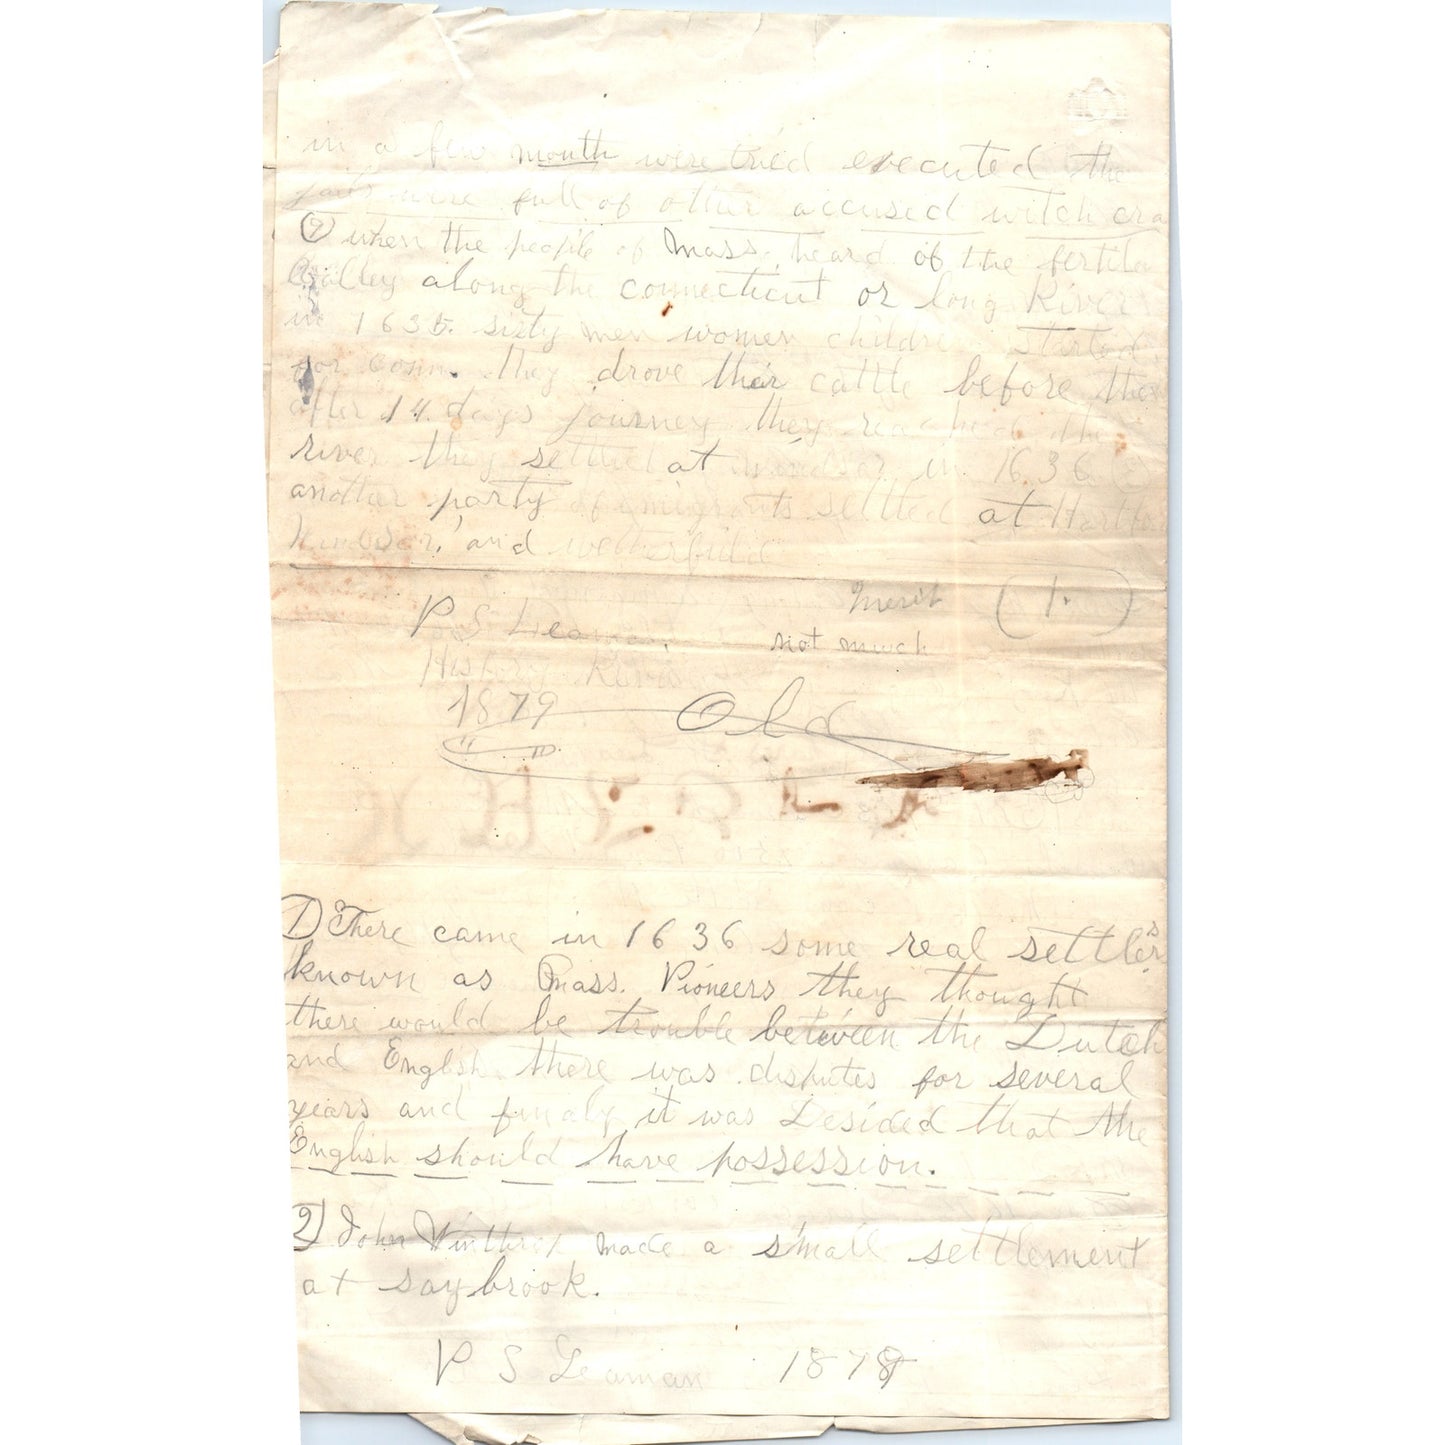 in a few month were tried executed the
jails were full of other accused witch cra
9) when the people of Mass. heard of the fertile
Valley along the connecticut or long River
in 1635. sixty men women children started
for conn. they drove their cattle before them
after 14 days journey they reached the
river they settled at windsor in 1636
another party of emigrants settled at Hartford
Windsor, and wetherfield
Merit (1.)
P S Leaman. not much
History
1879 Old
1) There came in 1636 some real settlers
known as Mass. Pioneers they thought
there would be trouble between the Dutch
and English there was disputes for several
years and finaly it was Desided that the
English should have possession.
2) John Winthrop made a small settlement
at saybrook.
P S Leaman 1879